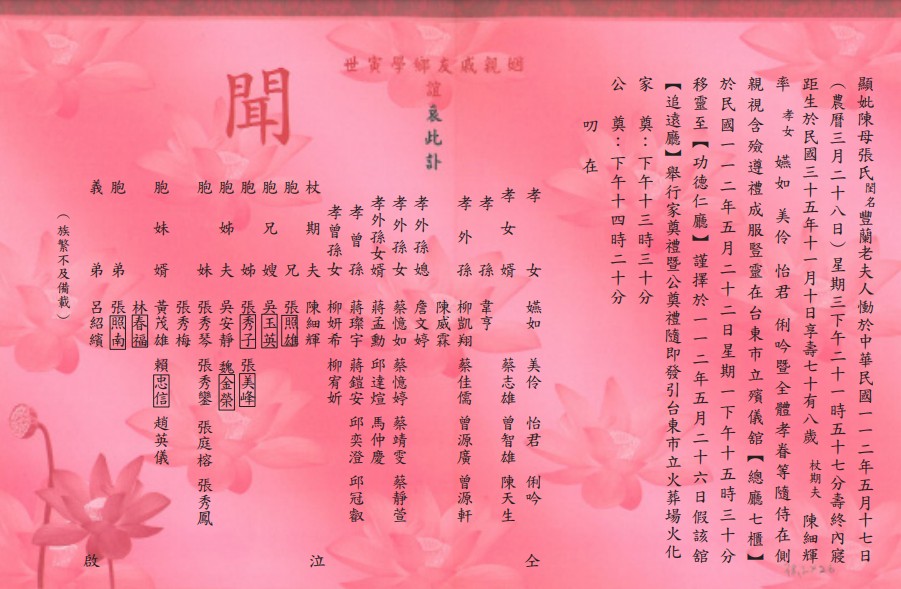 顯妣陳母張氏閨名豐蘭老夫人慟於中華民國一一二年五月十七日
(農曆三月二十八日)星期三下午二十一時五十七分壽終內寢
距生於民國三十五年十一月十日享壽七十有八歲 杖期夫 陳細輝
率 孝女 嬿如 美伶 怡君 俐吟暨全體孝眷等隨侍在側
親視含殮遵禮成服豎靈在台東市立殯儀舘【總廳七櫃】
於民國一一二年五月二十二日星期一下午十五時三十分
移靈至【功德仁廳】謹擇於一一二年五月二十六日假該舘
【追遠廳】舉行家奠禮暨公奠禮隨即發引台東市立火葬場火化
家奠:下午十三時三十分
公奠:下午十四時二十分
叨在
姻親戚友鄉學寅世
誼哀此訃
聞
孝女 嬿如 美伶 怡君 俐吟 仝
孝女婿 蔡志雄 曾智雄 陳天生
孝孫 韋亨
孝外孫 柳凱翔 蔡佳儒 曾源廣 曾源軒
陳威霖
孝外孫媳 詹文婷
孝外孫女 蔡憶如 蔡憶婷 蔡靖雯 蔡靜萱
孝外孫女婿 蔣孟勳 邱達煊 馬仲慶
孝曾孫 蔣璨宇 蔣鎧安 邱奕澄 邱冠叡
孝曾孫女 柳妍希 柳宥妡
杖期夫 陳細輝 泣
胞兄 張照雄
胞兄嫂 吳玉英
胞姊 張秀子 張美峰
胞姊夫 吳安靜 魏金榮
胞妹 張秀琴 張秀鑾 張庭榕 張秀鳳
張秀梅
胞妹婿 黃茂雄 賴忠信 趙英儀
林春福
胞弟 張照南
義弟 呂紹繽 啟
(族繁不及備載)